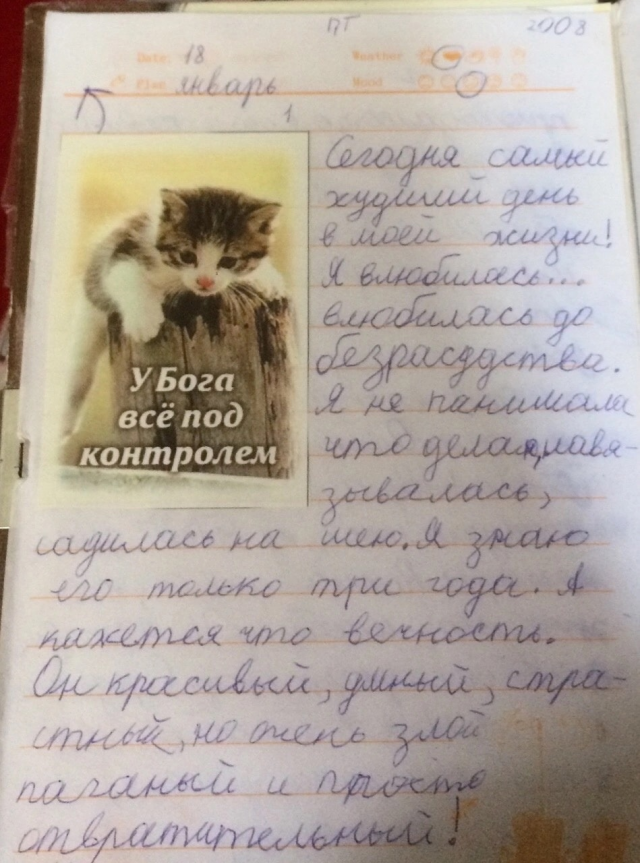 ПТ 2008
Date: 18 Weather
январь Mood
1.
Сегодня самый
худший день
в моей жизни!
Я влюбилась...
влюбилась до
безрасудства.
Я не панимала
что делаю, навя-
зывалась,
садилась на шею. Я знаю
его только три года. А
кажется что вечность.
Он красивый, умный, стра-
стный, но очень злой
паганый и просто
отвратительный!
У Бога
всё под
контролем